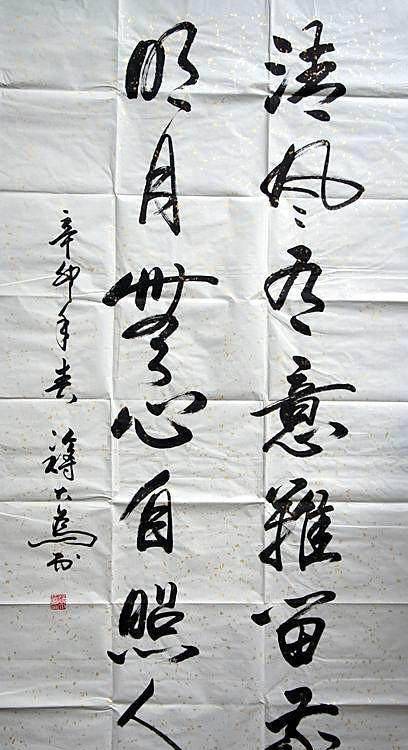 清風有意難留
明月無心自照人
辛卯年春